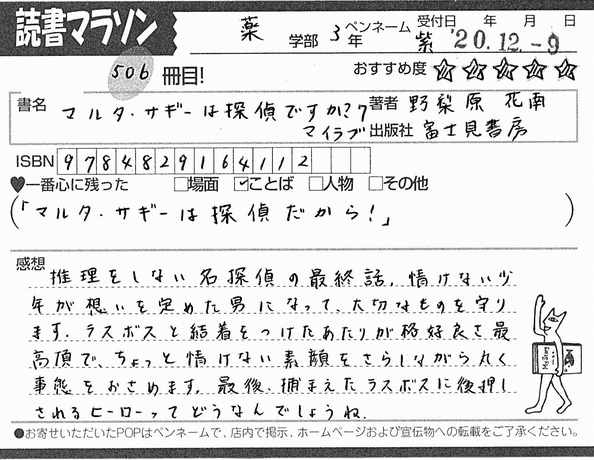 読書マラソン
薬 学部 3年 ペンネーム 紫 受付日 年 月 日
'20.12.-9
506 冊目!
おすすめ度 ☆☆☆☆☆
書名 マルタ・サギーは探偵ですか?7 著者 野梨原 花南
マイラブ 出版社 富士見書房
ISBN 9784829164112
♥一番心に残った □場面 ☑ことば □人物 □その他
(「マルタ・サギーは探偵だから!」)
感想
推理をしない名探偵の最終話。情けない少
年が想いを定めた男になって、大切なものを守り
ます。ラスボスと結着をつけたあたりが格好良さ最
高頂で、ちょっと情けない素顔をさらしながら丸く
事態をおさめます。最後、捕まえたラスボスに後押し
されるヒーローってどうなんでしょうね。
●お寄せいただいたPOPはペンネームで、店内で掲示、ホームページおよび宣伝物への転載をご了承ください。